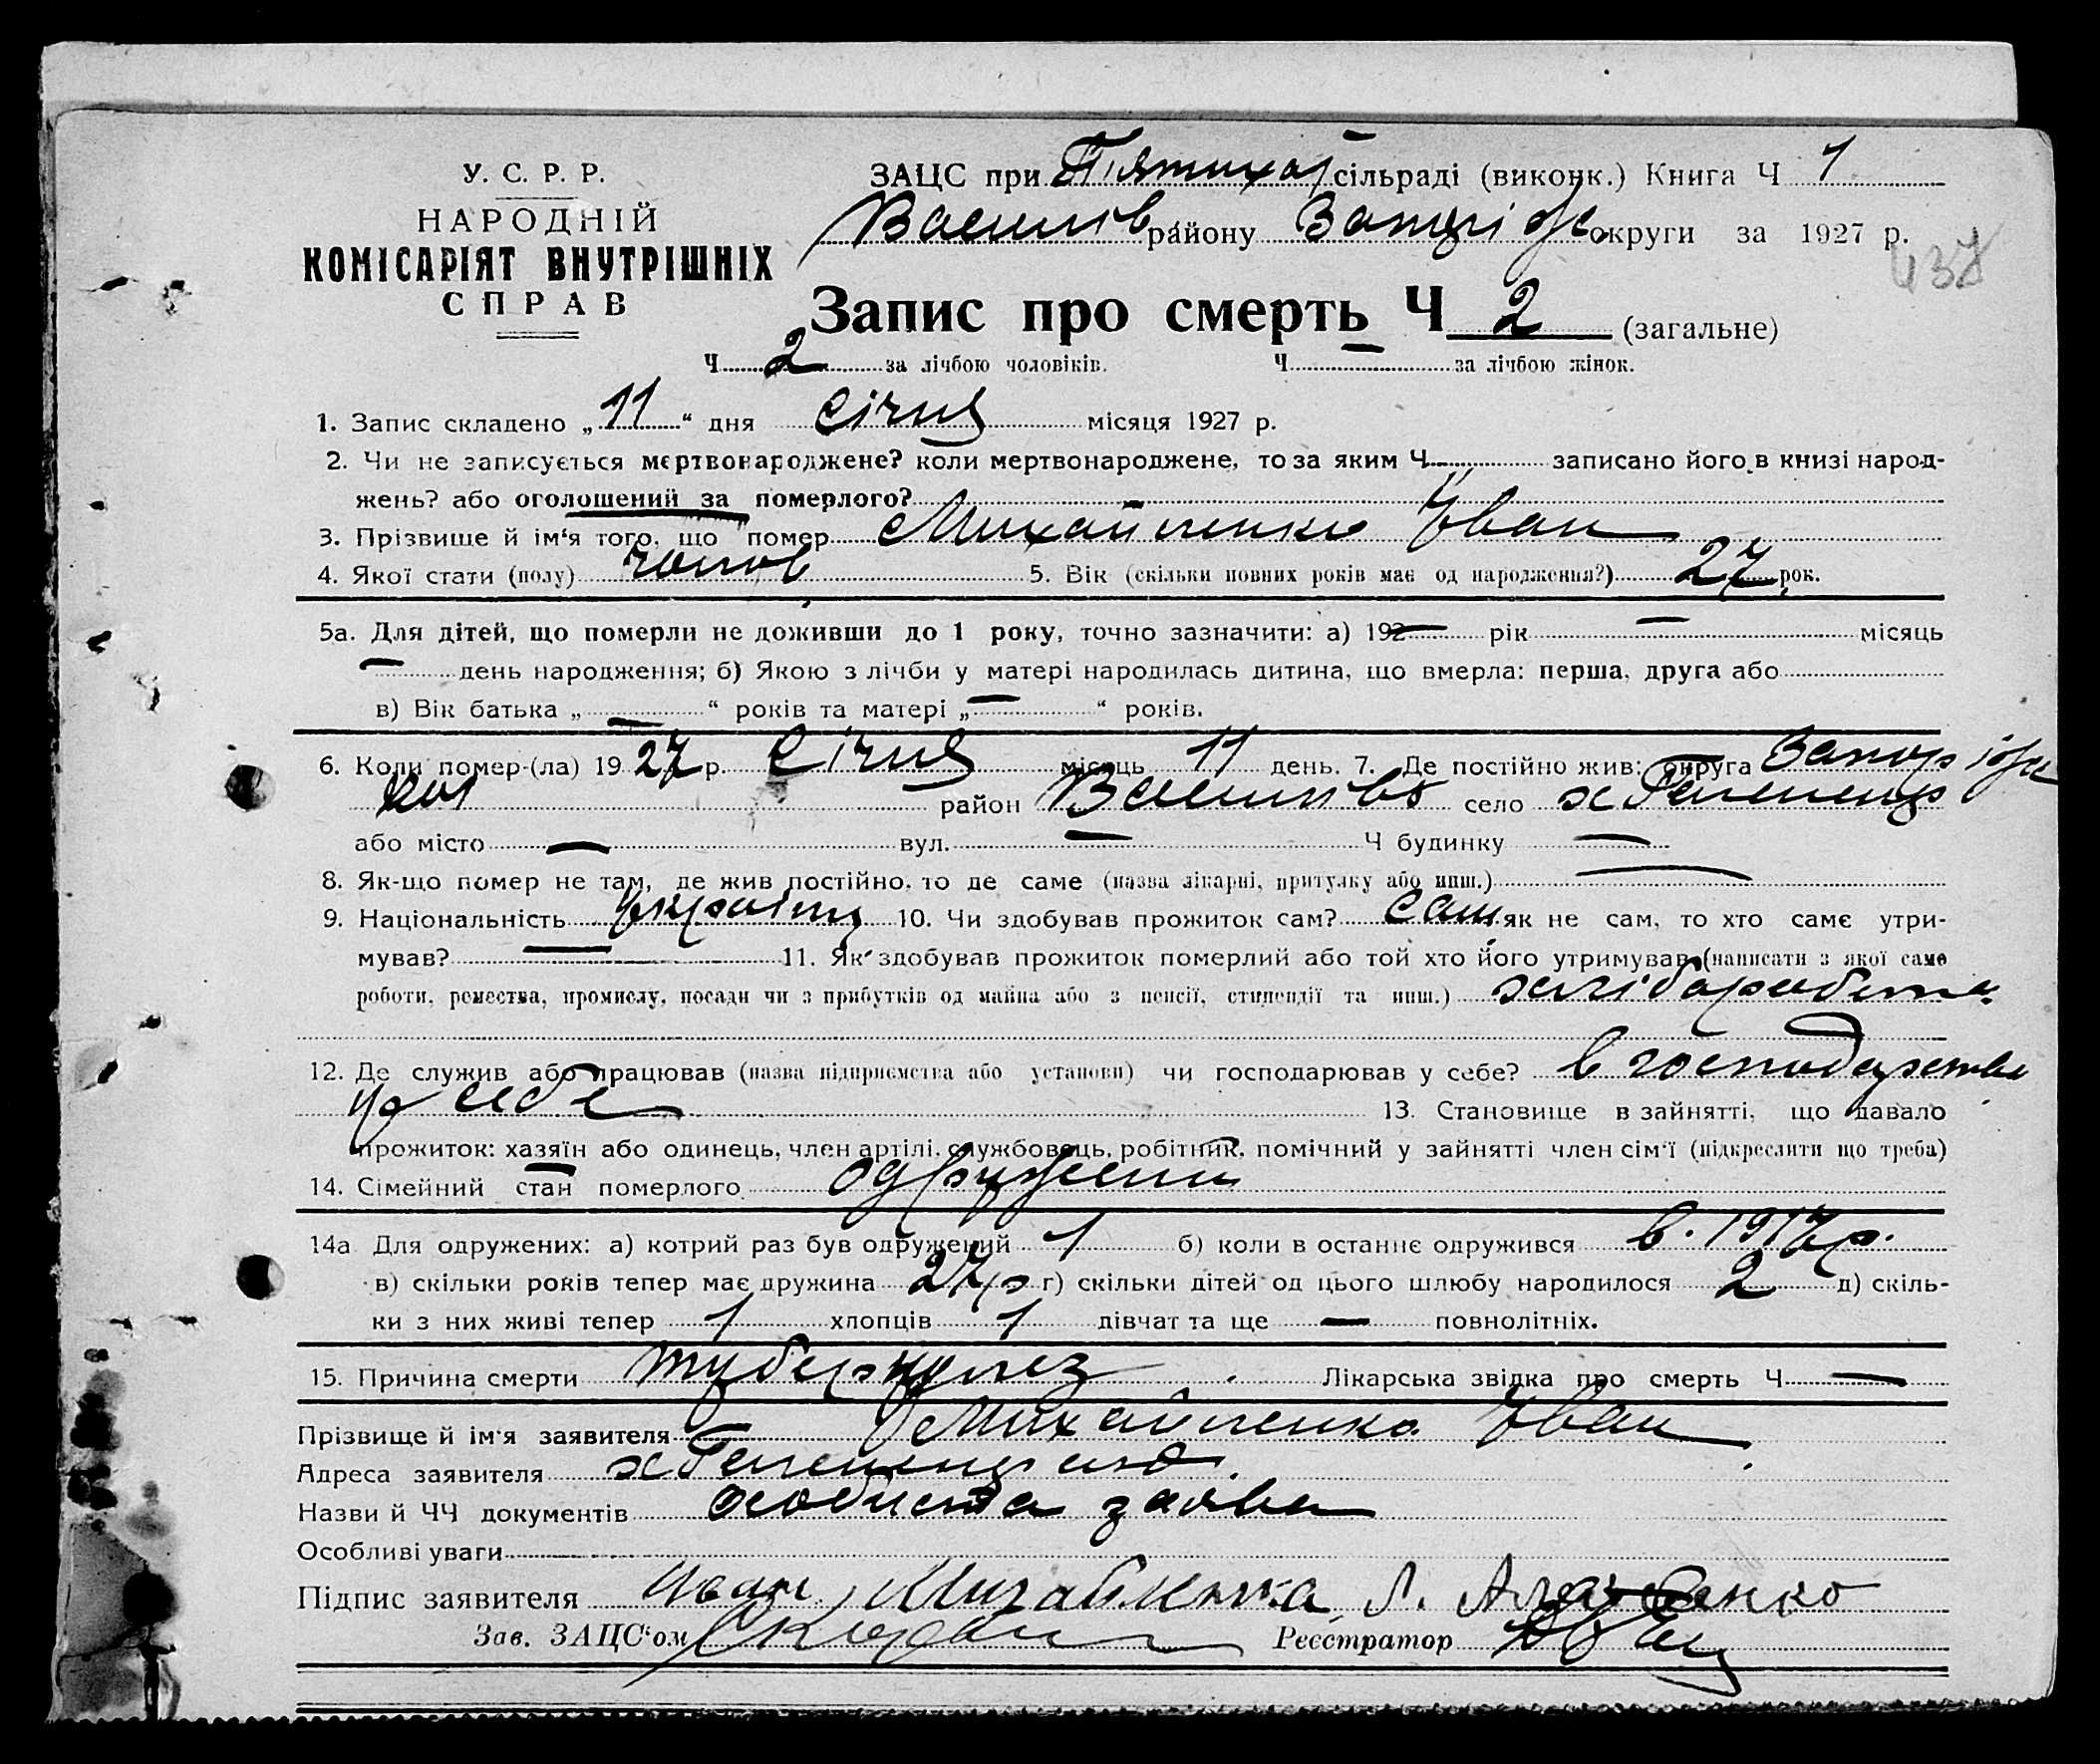 У. С. Р. Р.
НАРОДНІЙ
КОМІСАРІЯТ ВНУТРІШНІХ
СПРАВ
ЗАЦС при Пятихат сільраді (виконк.) Книга Ч 1
Василів району Запоріж округи за 1927 р.
437
Запис про смерть Ч 2 (загальне)
Ч 2 за лічбою чоловіків. Ч — за лічбою жінок.
1. Запис складено „11“ дня Січня місяця 1927 р.
2. Чи не записується мертвонароджене? коли мертвонароджене, то за яким Ч записано його в книзі народ-
жень? або оголошений за померлого?
3. Прізвище й ім'я того, що помер Михайленко Іван
4. Якої стати (полу) чолов 5. Вік (скільки повних років має од народження?) 27 рок.
5а. Для дітей, що померли не доживши до 1 року, точно зазначити: а) 192— рік — місяць
— день народження; б) Якою з лічби у матері народилась дитина, що вмерла: перша, друга або
в) Вік батька „—“ років та матері „—“ років.
6. Коли помер-(ла) 1927 р. Січня місяць 11 день. 7. Де постійно жив: округа Запоріж
район Василівс село х
або місто — вул. — Ч будинку —
8. Як-що помер не там, де жив постійно, то де саме (назва лікарні, притулку або инш.) —
9. Національність Украінец 10. Чи здобував прожиток сам? Сам як не сам, то хто саме утри-
мував? — 11. Як здобував прожиток померлий або той хто його утримував (написати з якої саме
роботи, ремества, промислу, посади чи з прибутків од майна або з пенсії, стипендії та инш.)
12. Де служив або працював (назва підприємства або установи) чи господарював у себе? в господарстві
у себе 13. Становище в зайнятті, що давало
прожиток: хазяїн або одинець, член артілі, службовець, робітник, помічний у зайнятті член сім'ї (підкреслити що треба)
14. Сімейний стан померлого одружений
14а Для одружених: а) котрий раз був одружений 1 б) коли в останнє одружився в. 1917 р.
в) скільки років тепер має дружина 27 р г) скільки дітей од цього шлюбу народилося 2 д) скіль-
ки з них живі тепер 1 хлопців 1 дівчат та ще — повнолітніх.
15. Причина смерти туберкульоз Лікарська звідка про смерть Ч —
Прізвище й ім'я заявителя Михайленко Іван
Адреса заявителя х
Назви й ЧЧ документів особиста заява
Особливі уваги
Підпис заявителя Иван Михайленко
Зав. ЗАЦС'ом Реєстратор